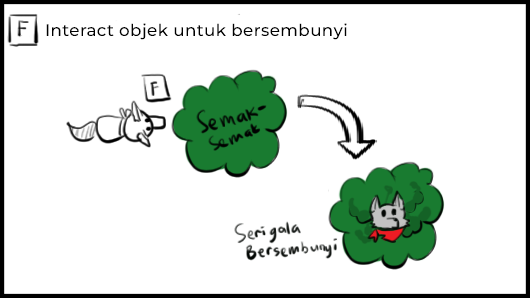 F Interact objek untuk bersembunyi
F
Semak-
Semak
Serigala
Bersembunyi